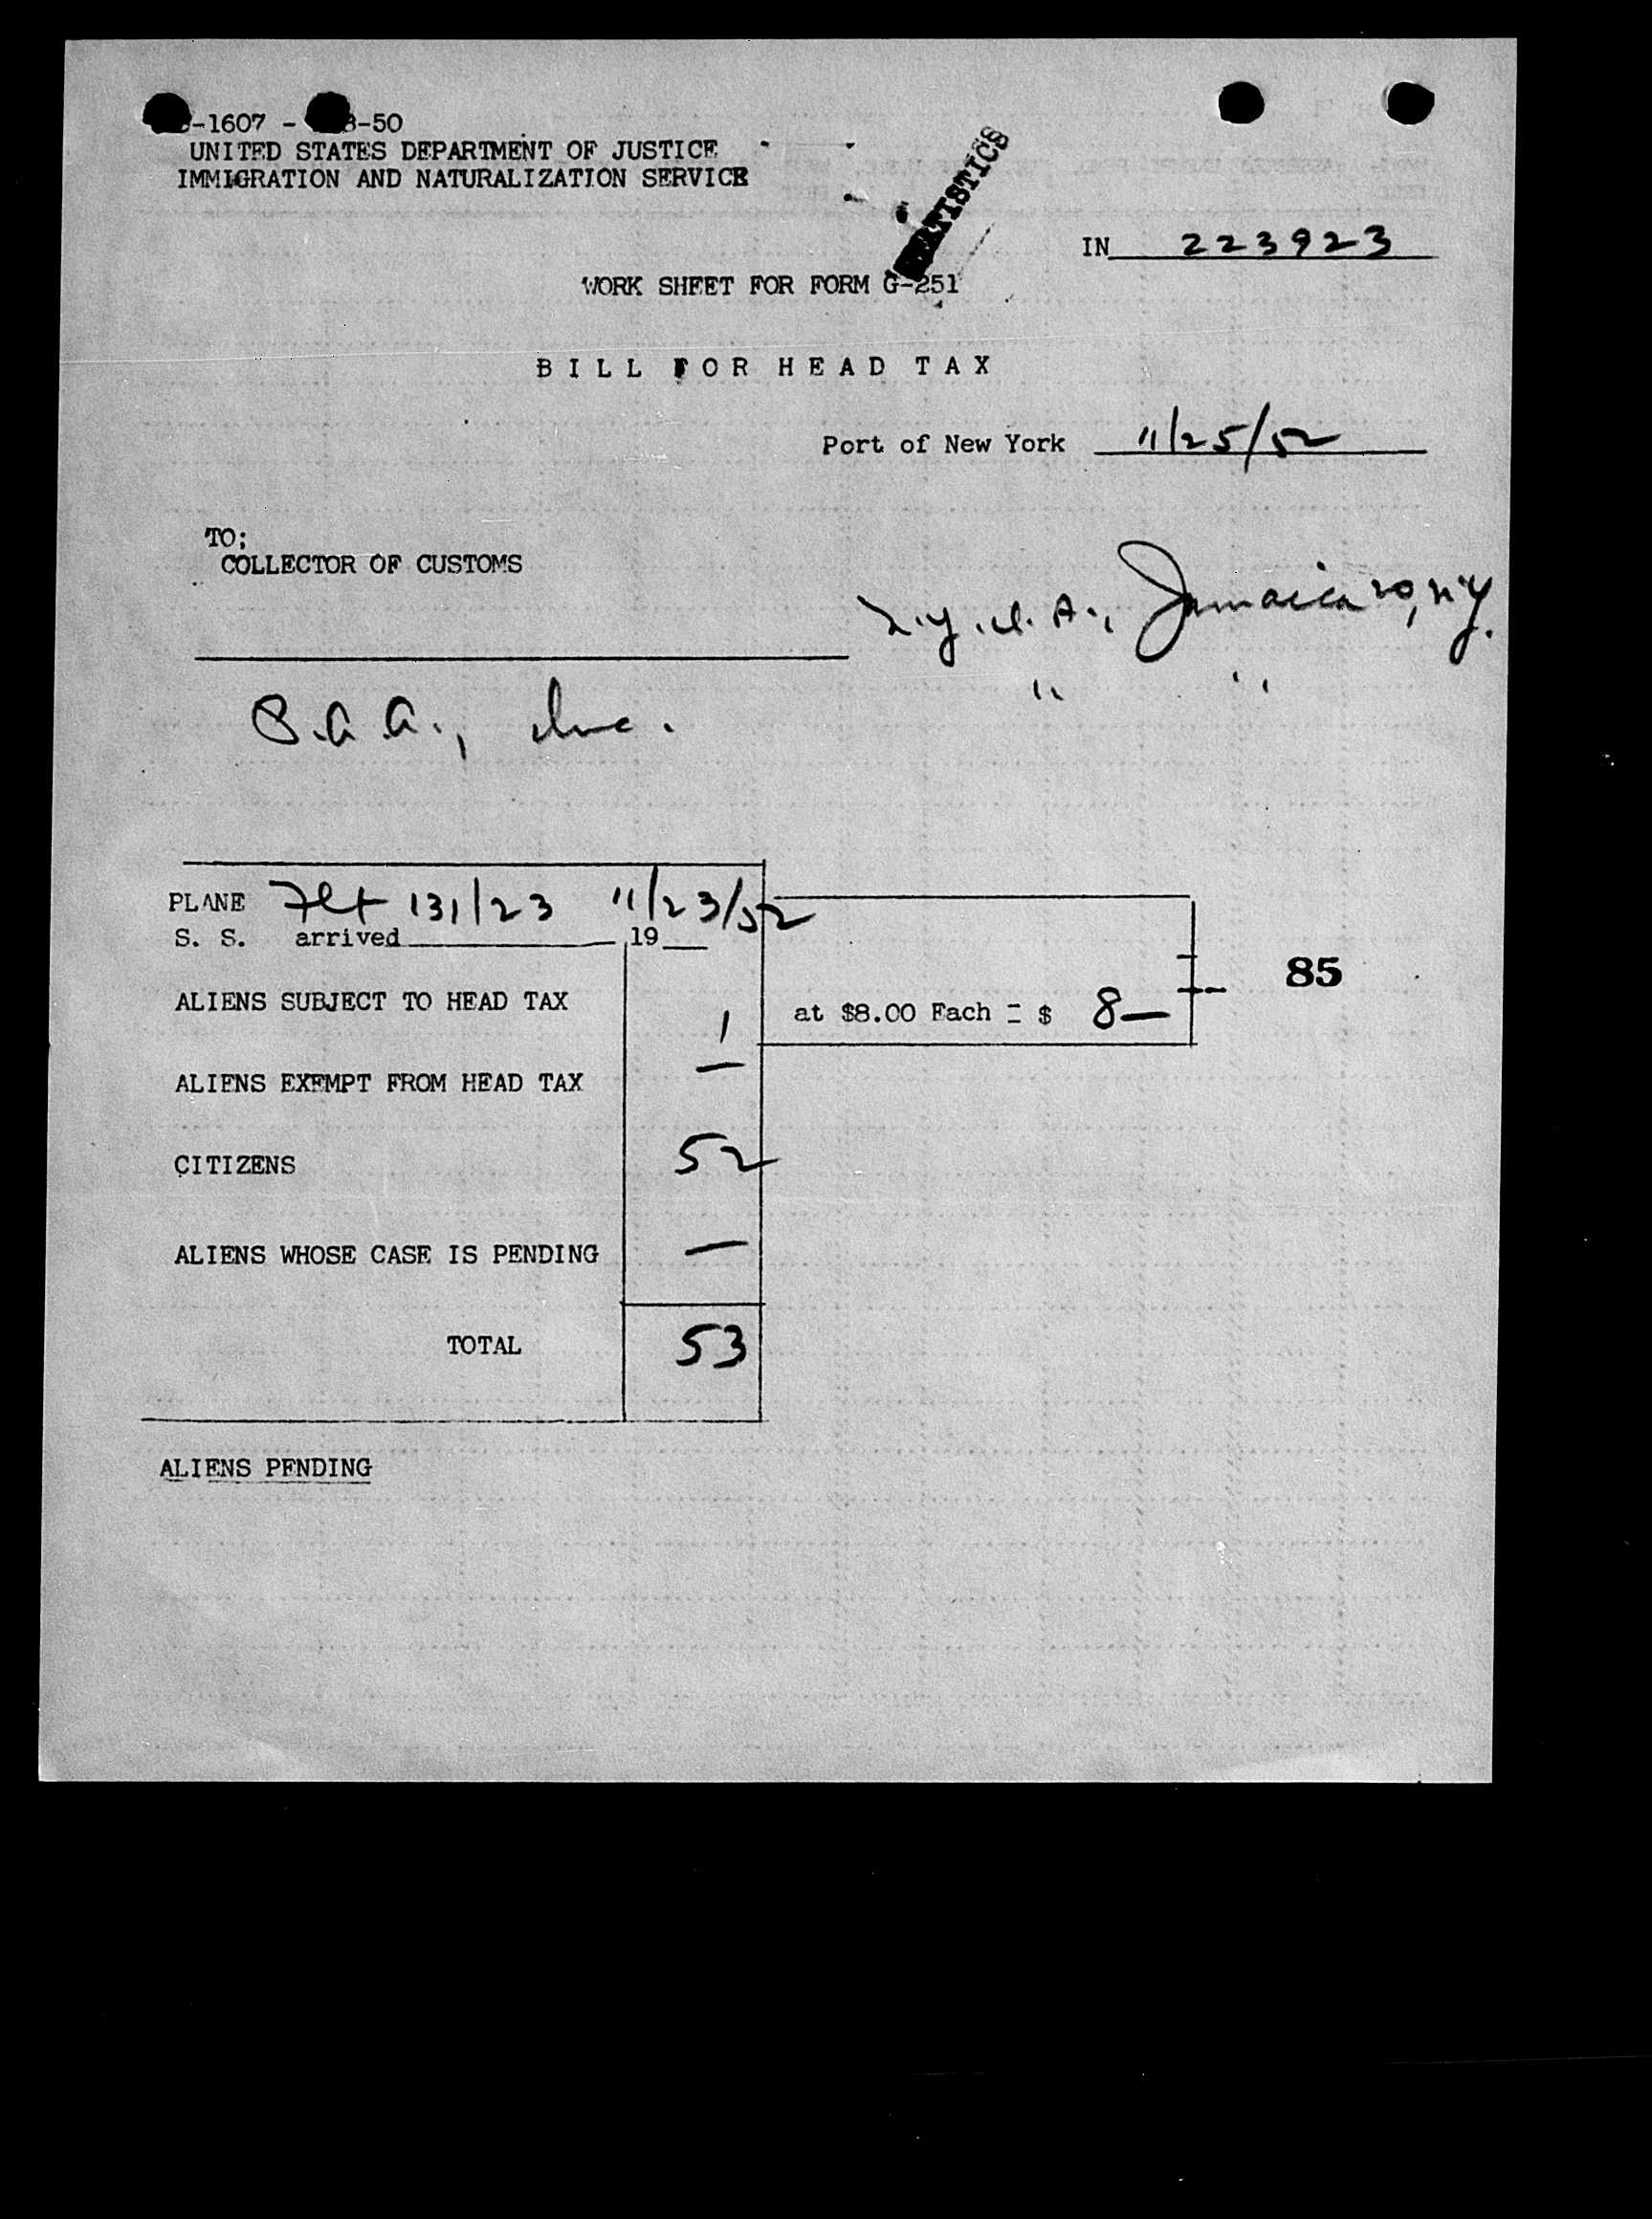 -1607 - 8-50
UNITED STATES DEPARTMENT OF JUSTICE
IMMIGRATION AND NATURALIZATION SERVICE
STATISTICS
IN 223923
WORK SHEET FOR FORM G-251
BILL FOR HEAD TAX
Port of New York 11/25/52
TO;
COLLECTOR OF CUSTOMS
N.Y.I.A., Jamaica 20, N.Y.
P.A.A., Inc. " "
PLANE Flt 131/23 11/23/52
S. S. arrived ,19
85
ALIENS SUBJECT TO HEAD TAX 1 at $8.00 Each = $ 8—
ALIENS EXEMPT FROM HEAD TAX —
CITIZENS 52
ALIENS WHOSE CASE IS PENDING —
TOTAL 53
ALIENS PENDING